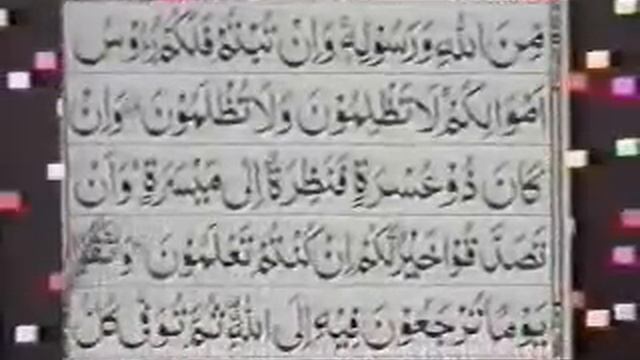 مِنَ اللهِ وَرَسُوْلِهٖ وَاِنْ تُبْتُمْ فَلَكُمْ رُءُوْسُ
اَمْوَالِكُمْ لَا تَظْلِمُوْنَ وَلَا تُظْلَمُوْنَ وَاِنْ
كَانَ ذُوْعُسْرَةٍ فَنَظِرَةٌ اِلٰى مَيْسَرَةٍ وَاَنْ
تَصَدَّقُوْا خَيْرٌ لَّكُمْ اِنْ كُنْتُمْ تَعْلَمُوْنَ وَاتَّقُوْا
يَوْمًا تُرْجَعُوْنَ فِيْهِ اِلَى اللهِ ثُمَّ تُوَفّٰى كُلُّ